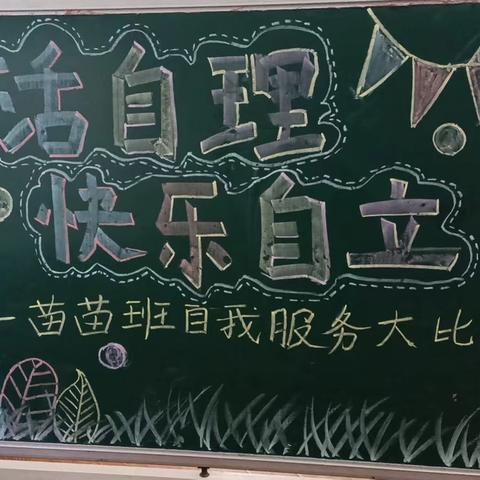 活自理
快乐自立
一苗苗班自我服务大比